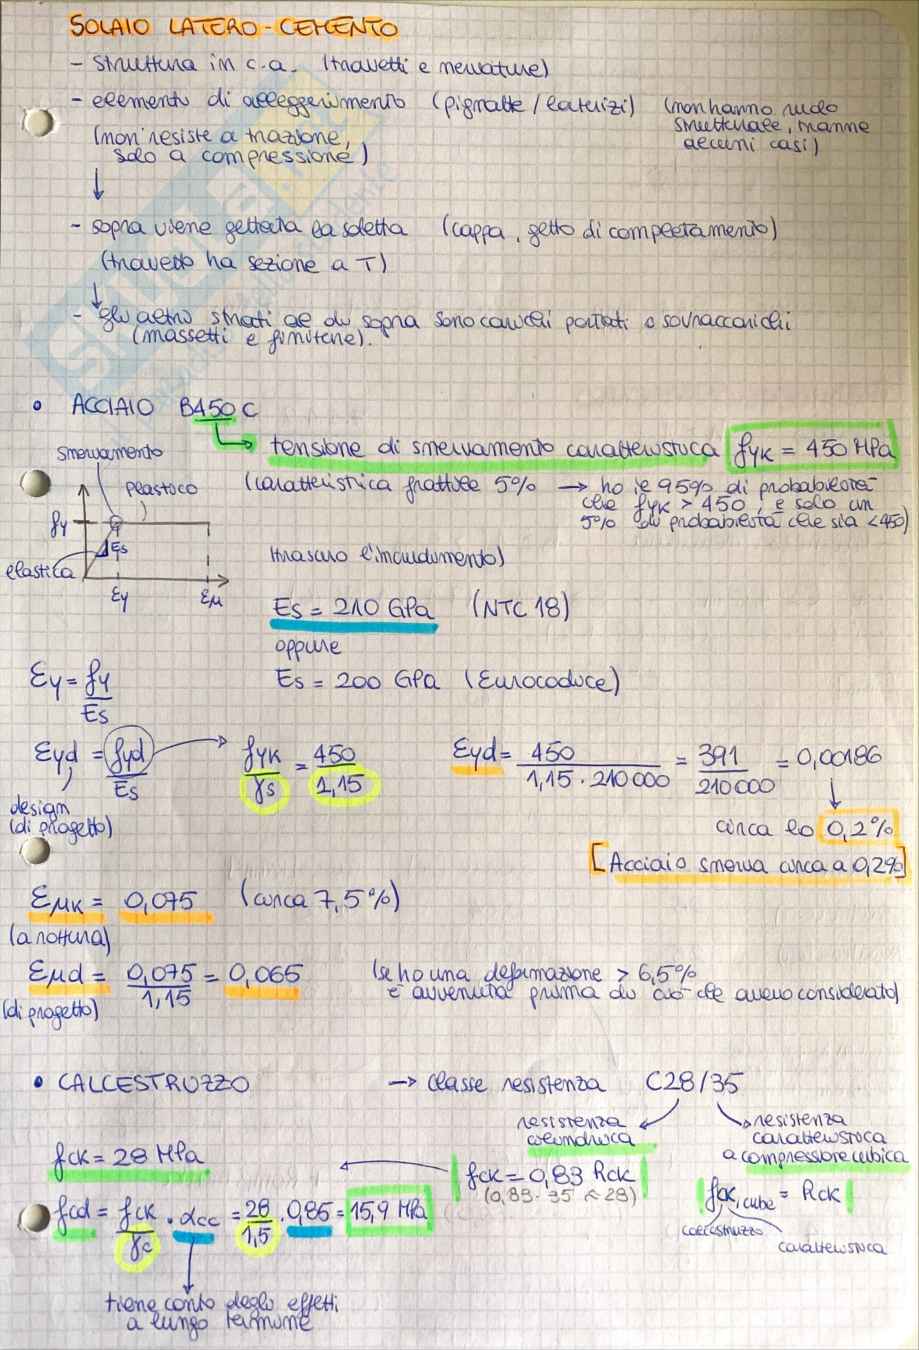 SOLAIO LATERO-CEMENTO
- Struttura in c.a. (travetti e nervature)
- elementi di alleggerimento (pignatte/laterizi) (non hanno ruolo
strutturale, tranne
alcuni casi)
(non resiste a trazione,
solo a compressione)
↓
- sopra viene gettata la soletta (cappa, getto di completamento)
(travetto ha sezione a T)
↓
- gli altri strati al di sopra sono carichi portati o sovraccarichi
(massetti e finiture).
• ACCIAIO B450C
→ tensione di snervamento caratteristica fyk = 450 MPa
snervamento
plastico
fy
Es
elastica
εy εu
(caratteristica frattile 5% → ho il 95% di probabilità
che fyk > 450, e solo un
5% di probabilità che sia <450)
(trascuro l'incrudimento)
Es = 210 GPa (NTC 18)
oppure
Es = 200 GPa (Eurocodice)
εy = fy/Es
εyd = fyd/Es → fyk/γs = 450/1,15
εyd = 450/(1,15 · 210 000) = 391/210 000 = 0,00186
design
(di progetto)
↓
circa lo 0,2%
[Acciaio snerva circa a 0,2%]
εuk = 0,075 (circa 7,5%)
(a rottura)
εud = 0,075/1,15 = 0,065 (se ho una deformazione > 6,5%
è avvenuta prima di ciò che avevo considerato)
(di progetto)
• CALCESTRUZZO → classe resistenza C28/35
resistenza
cilindrica
resistenza
caratteristica
a compressione cubica
fck = 28 MPa ← fck = 0,83 Rck
(0,83 · 35 ≈ 28)
fck,cube = Rck
calcestruzzo
caratteristica
fcd = fck/γc · αcc = 28/1,5 · 0,85 = 15,9 MPa
tiene conto degli effetti
a lungo termine